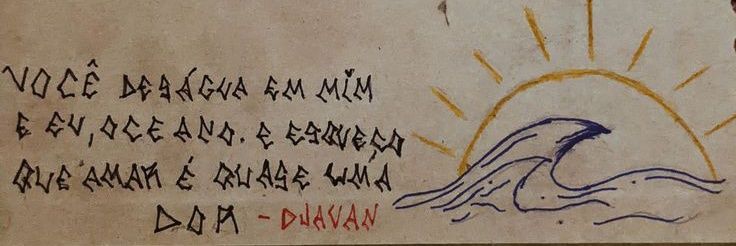 VOCÊ DESÁGUA EM MIM
E EU, OCEANO. E ESQUEÇO
QUE AMAR É QUASE UMA
DOR - DJAVAN